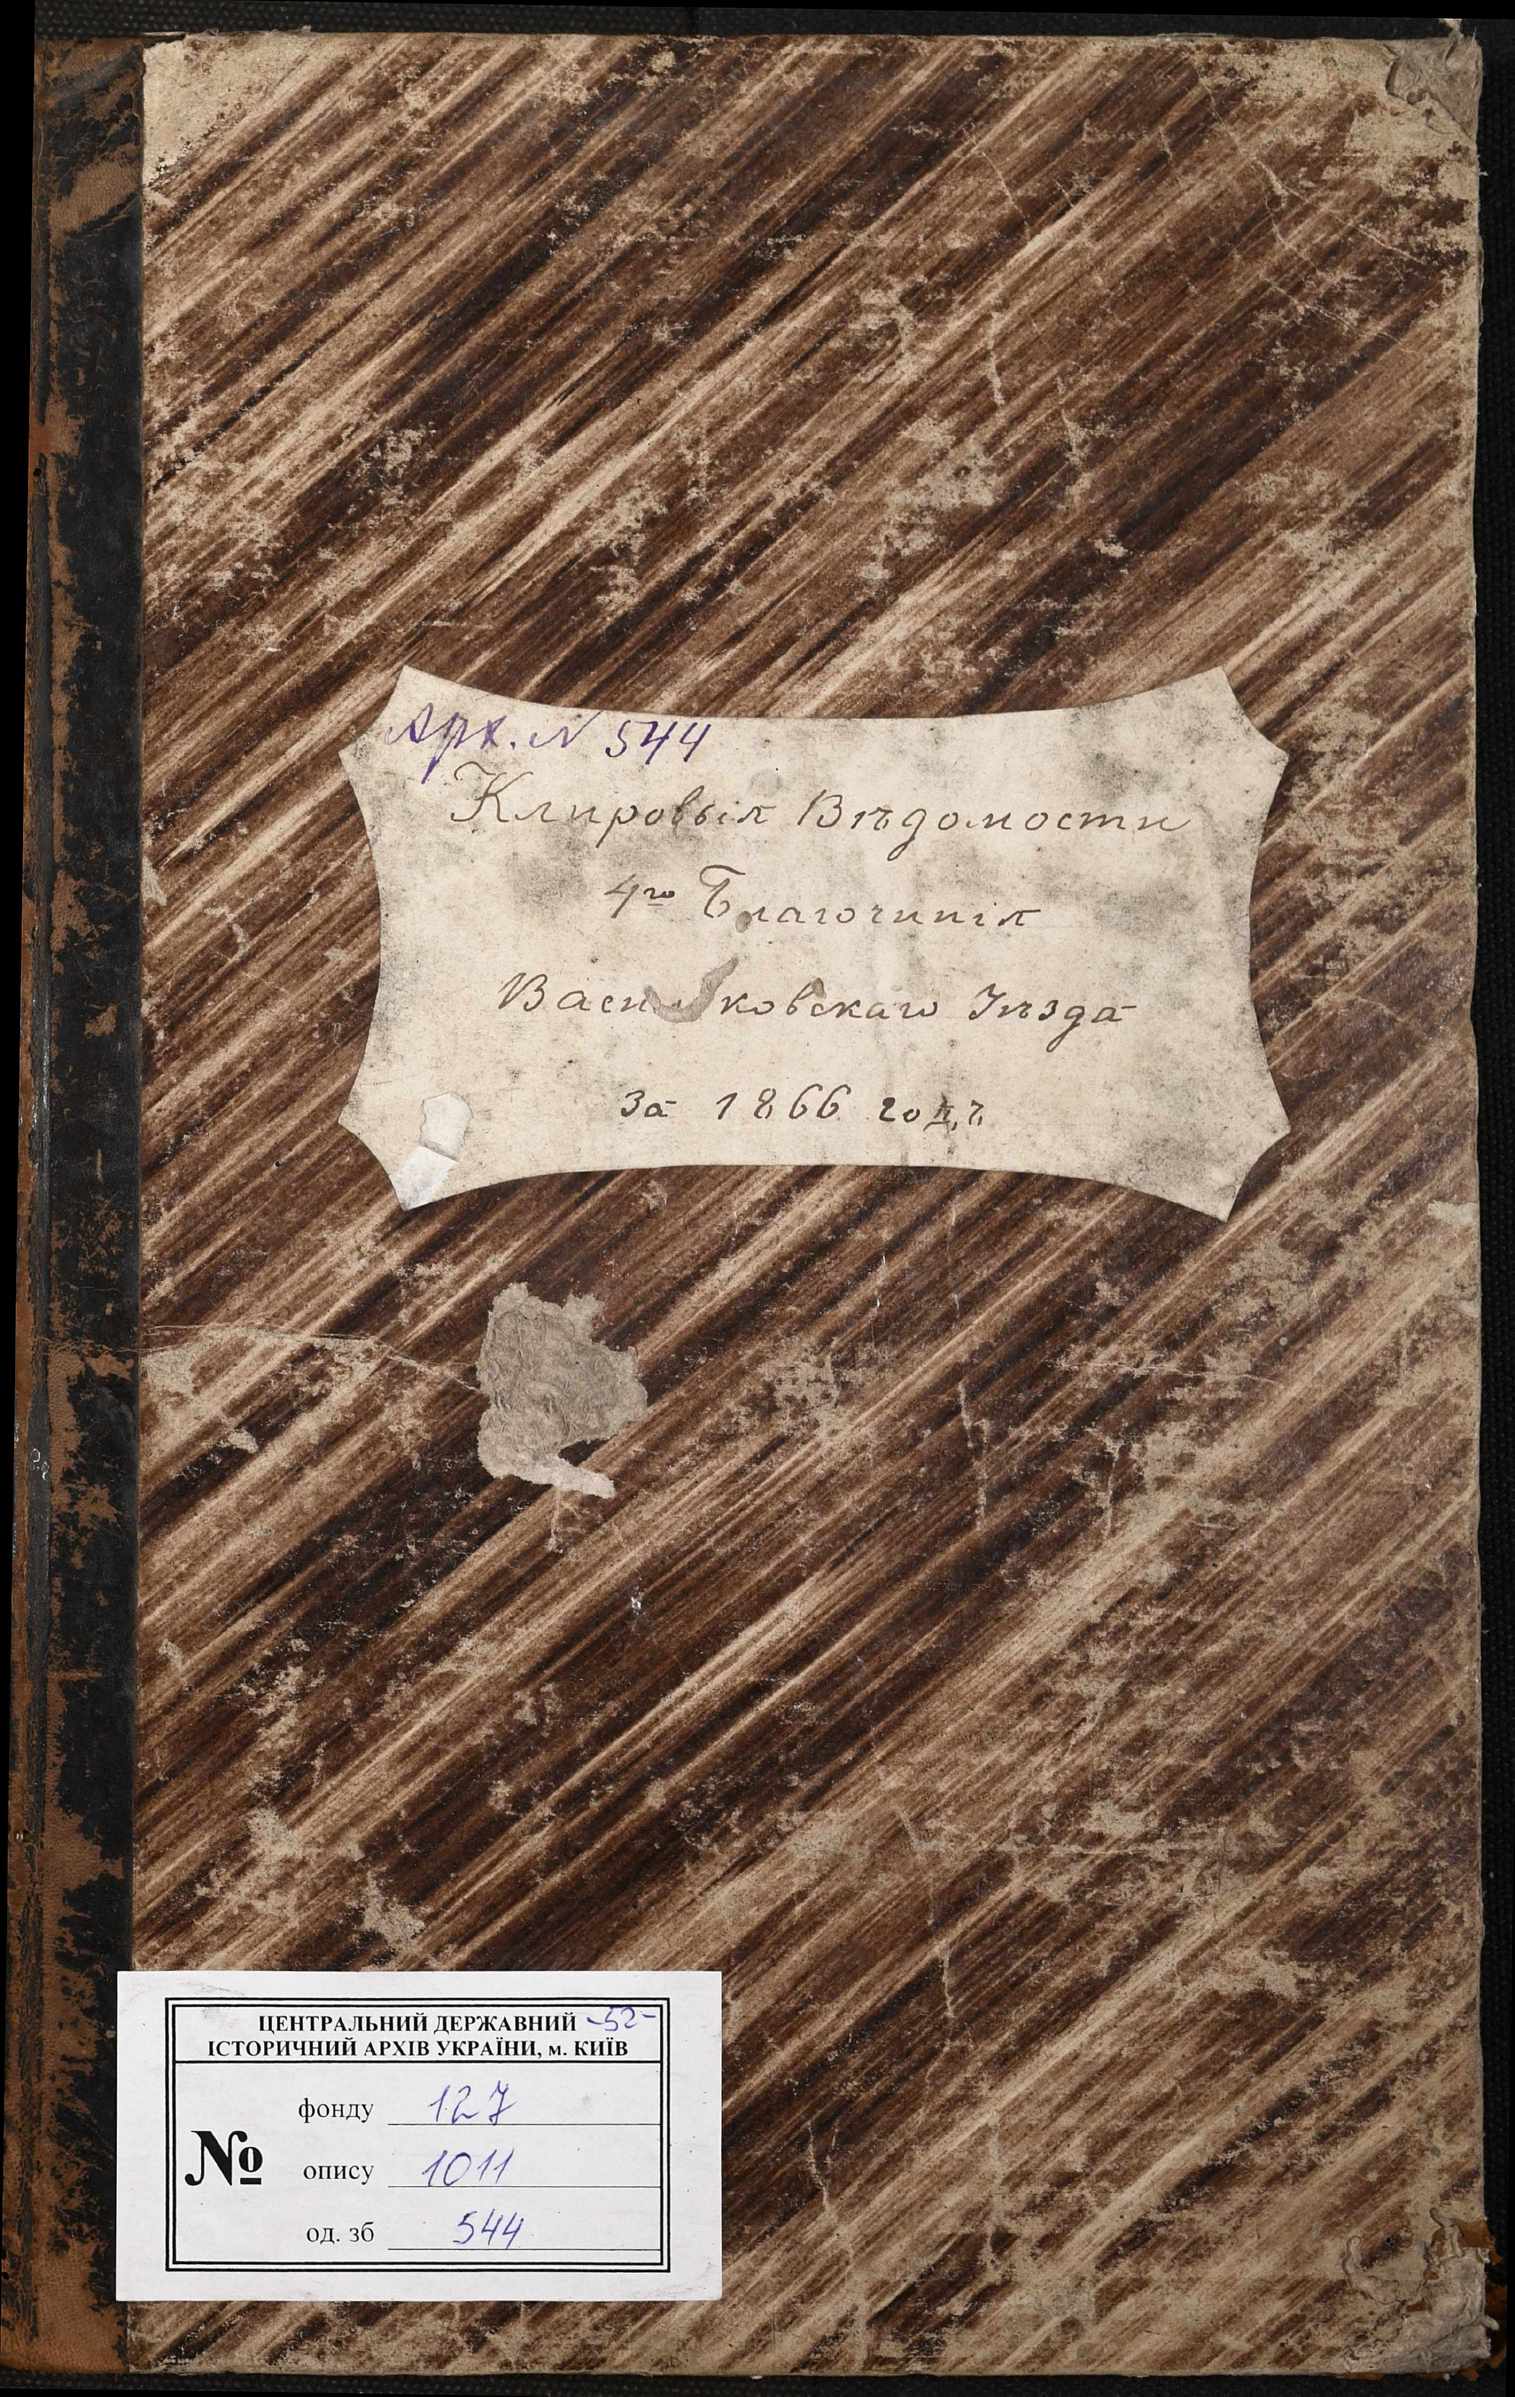 Арх. N 544
Клировыя Вѣдомости
4го Благочинія
Васильковскаго Уѣзда
за 1866 годъ
ЦЕНТРАЛЬНИЙ ДЕРЖАВНИЙ -52-
ІСТОРИЧНИЙ АРХІВ УКРАЇНИ, м. КИЇВ
фонду 127
№ опису 1011
од. зб 544